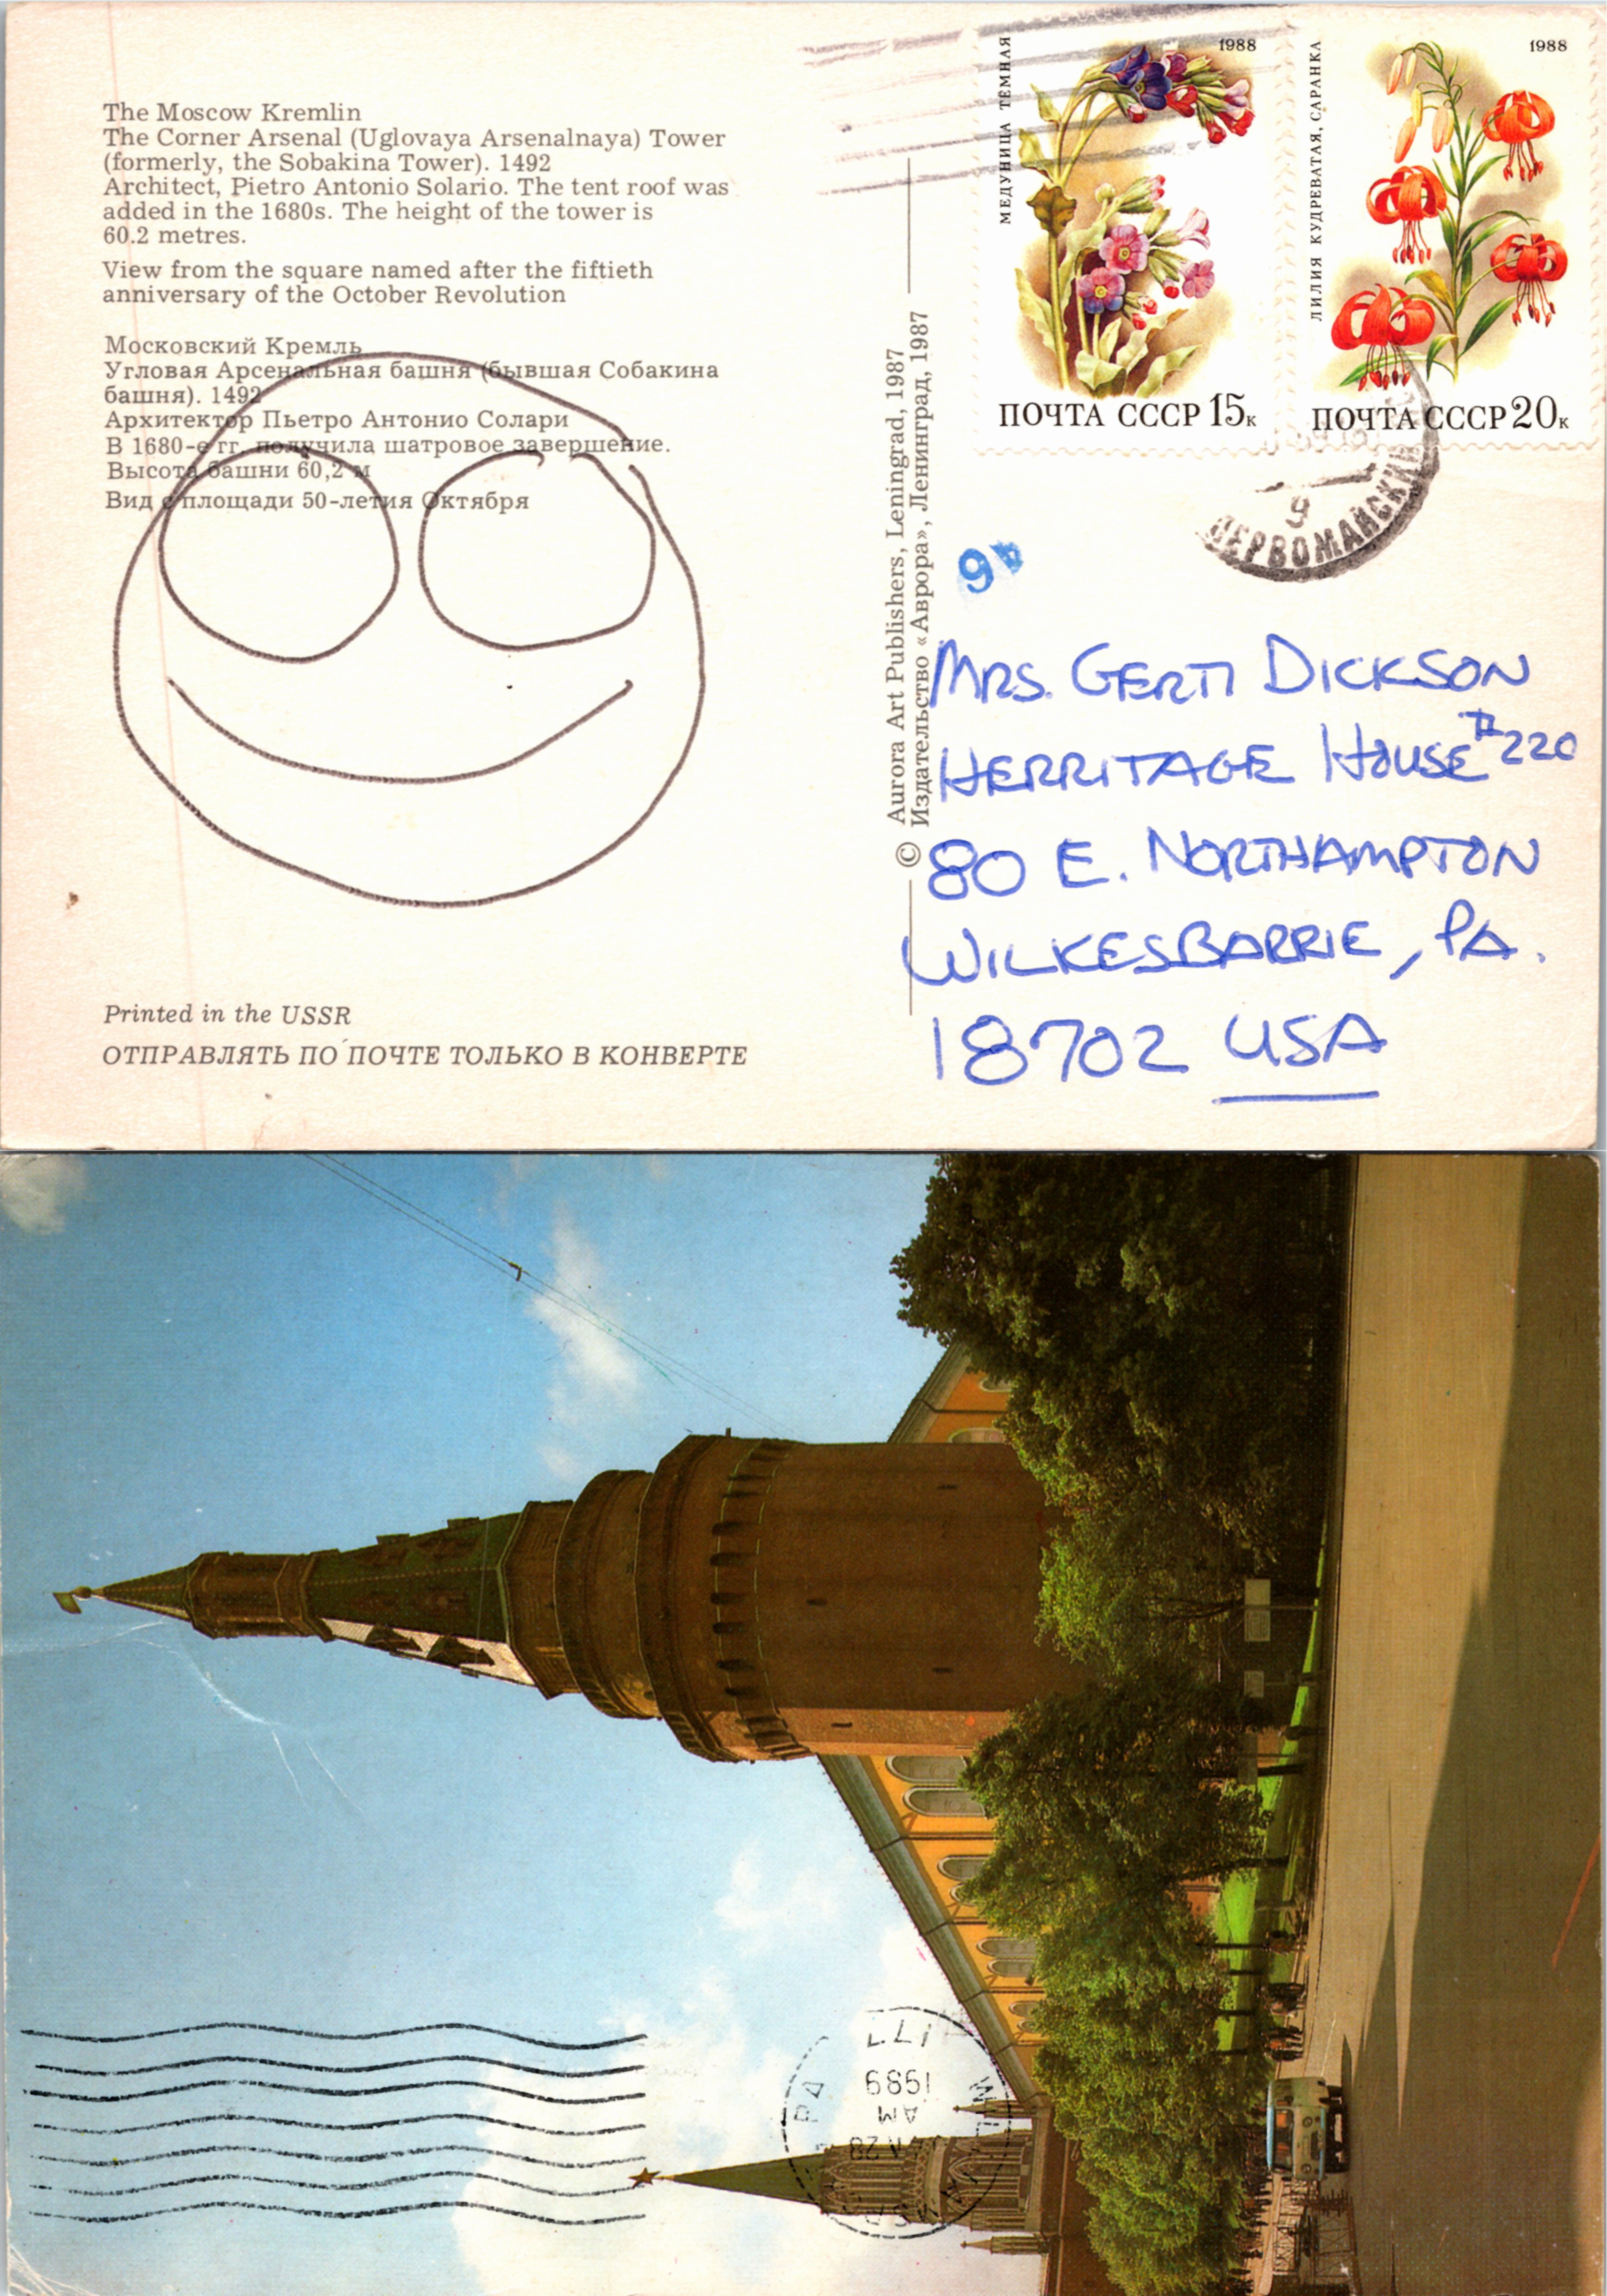 The Moscow Kremlin
The Corner Arsenal (Uglovaya Arsenalnaya) Tower
(formerly, the Sobakina Tower). 1492
Architect, Pietro Antonio Solario. The tent roof was
added in the 1680s. The height of the tower is
60.2 metres.
View from the square named after the fiftieth
anniversary of the October Revolution
Московский Кремль
Угловая Арсенальная башня (бывшая Собакина
башня). 1492
Архитектор Пьетро Антонио Солари
В 1680-е гг. получила шатровое завершение.
Высота башни 60,2 м
Вид с площади 50-летия Октября
Printed in the USSR
ОТПРАВЛЯТЬ ПО ПОЧТЕ ТОЛЬКО В КОНВЕРТЕ
© Aurora Art Publishers, Leningrad, 1987
Издательство «Аврора», Ленинград, 1987
МЕДУНИЦА ТЁМНАЯ
1988
ПОЧТА СССР 15к
ЛИЛИЯ КУДРЕВАТАЯ, САРАНКА
1988
ПОЧТА СССР 20к
9
ПЕРВОМАЙСКИЙ
9
MRS. GERTI DICKSON
HERRITAGE HOUSE #220
80 E. NORTHAMPTON
WILKESBARRIE, PA.
18702 USA
PA
AM
1989
177